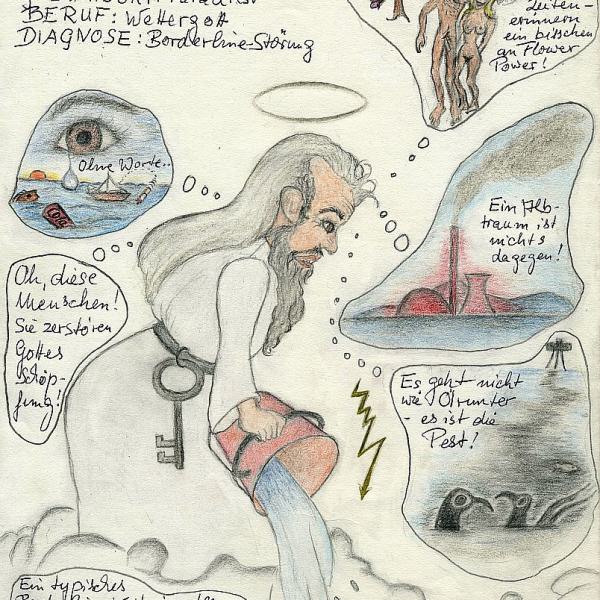 BERUF: Wettergott
DIAGNOSE: Borderline-Störung
Zeiten-
erinnern
ein bißchen
an Flower
Power!
Ohne Worte..
COLA
Ein Alb-
traum ist
nichts
dagegen!
Oh, diese
Menschen!
Sie zerstören
Gottes
Schöp-
fung!
Es geht nicht
wie Öl runter
- es ist die
Pest!
Ein typisches